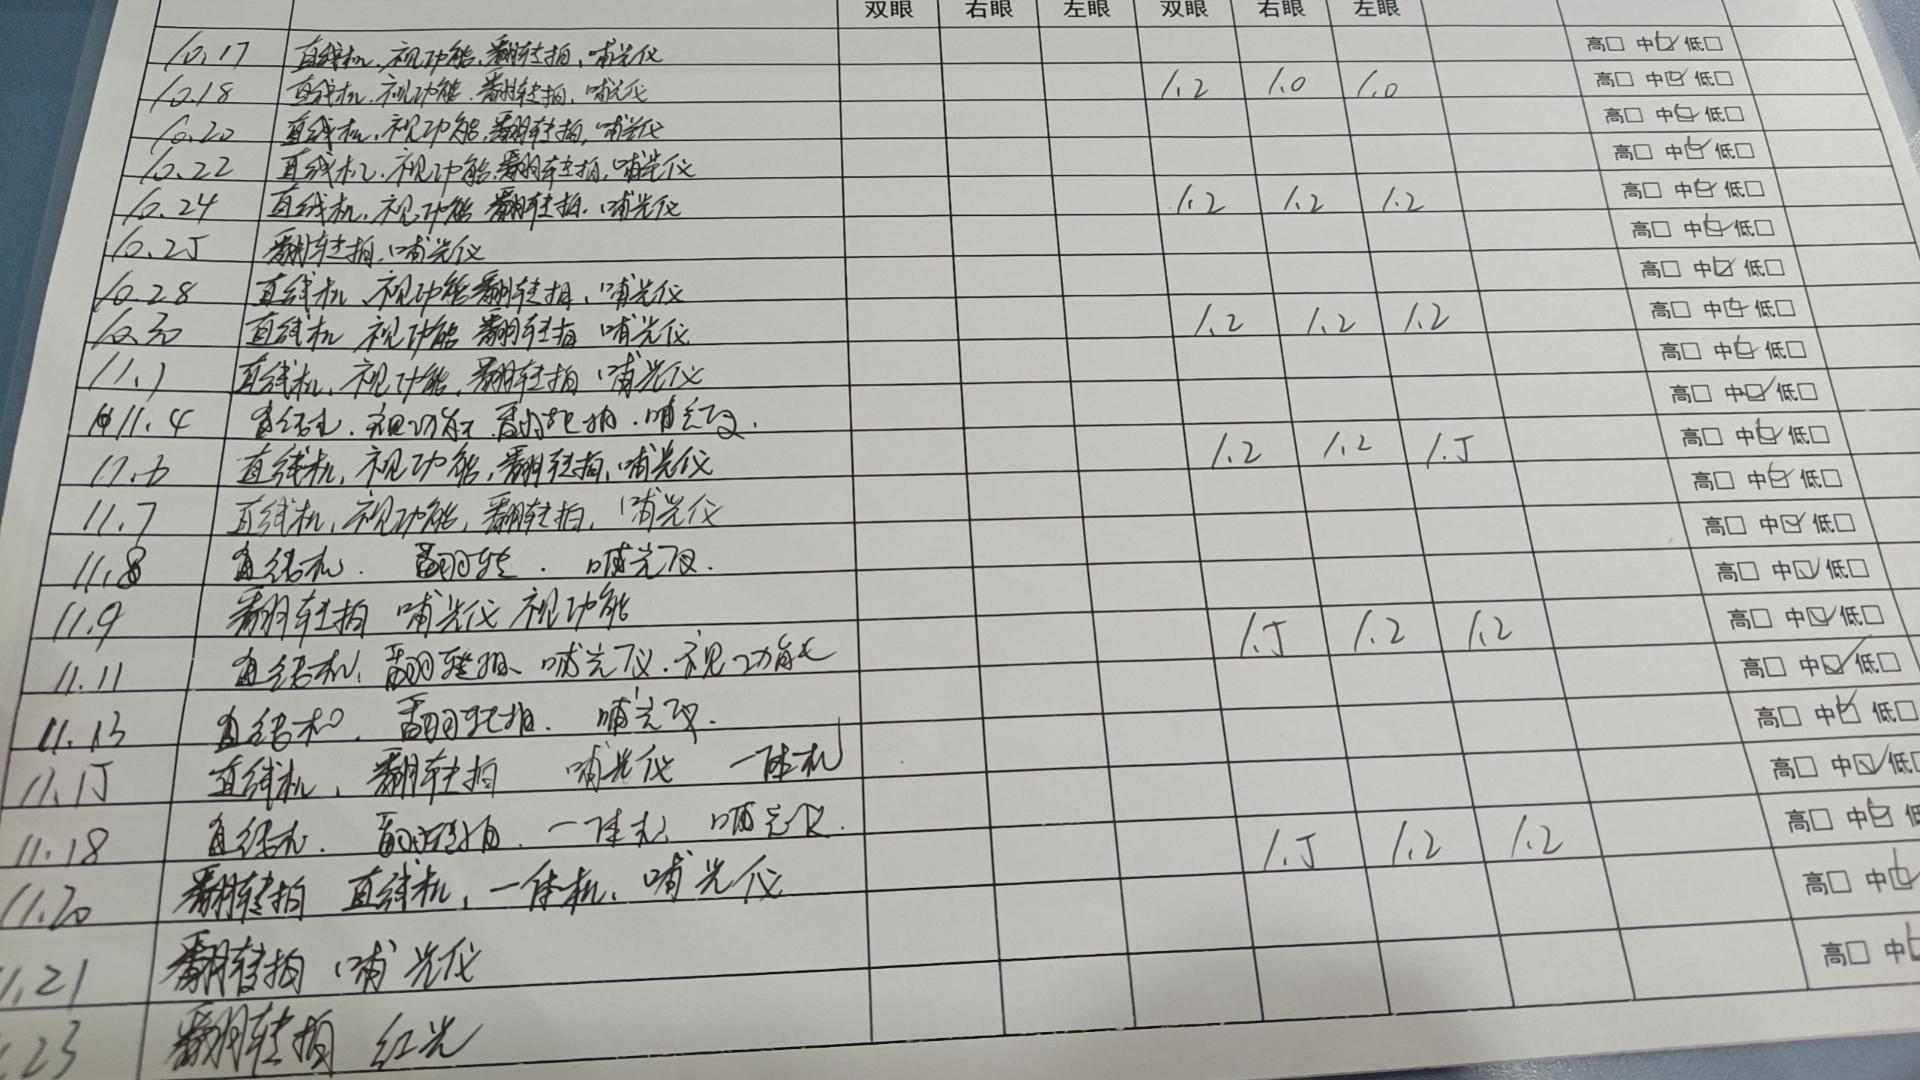 双眼 右眼 左眼 双眼 右眼 左眼
10.17 直线机、视功能、翻转拍、哺光仪 高□ 中☑ 低□
10.18 直线机、视功能、翻转拍、哺光仪 1.2 1.0 1.0 高□ 中☑ 低□
10.20 直线机、视功能、翻转拍、哺光仪 高□ 中☑ 低□
10.22 直线机、视功能、翻转拍、哺光仪 高□ 中☑ 低□
10.24 直线机、视功能 翻转拍、哺光仪 1.2 1.2 1.2 高□ 中☑ 低□
10.25 翻转拍、哺光仪 高□ 中☑ 低□
10.28 直线机、视功能 翻转拍、哺光仪 高□ 中☑ 低□
10.30 直线机 视功能 翻转拍 哺光仪 1.2 1.2 1.2 高□ 中☑ 低□
11.1 直线机、视功能、翻转拍 哺光仪 高□ 中☑ 低□
11.4 直线机、视功能、翻转拍、哺光仪. 高□ 中☑ 低□
11.6 直线机、视功能、翻转拍、哺光仪 1.2 1.2 1.5 高□ 中☑ 低□
11.7 直线机、视功能、翻转拍、哺光仪 高□ 中☑ 低□
11.8 直线机. 翻转. 哺光仪. 高□ 中☑ 低□
11.9 翻转拍 哺光仪 视功能 高□ 中☑ 低□
11.11 直线机、翻转拍、哺光仪、视功能 1.5 1.2 1.2 高□ 中☑ 低□
11.13 直线机. 翻转拍. 哺光仪. 高□ 中☑ 低□
11.15 直线机、翻转拍 哺光仪 一体机 高□ 中☑ 低□
11.18 直线机. 翻转拍. 一体机. 哺光仪. 1.5 1.2 1.2 高□ 中☑ 低□
11.20 翻转拍 直线机、一体机、哺光仪 高□ 中☑ 低
.21 翻转拍 哺光仪 高□ 中☑
.23 翻转拍 红光 高□ 中